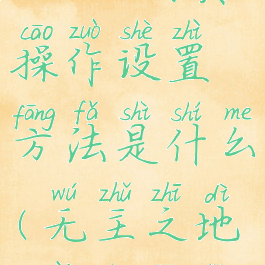 cāo zuò shè zhì
操作设置
fāng fǎ shì shí me
方法是什么
wú zhǔ zhī dì
（无主之地